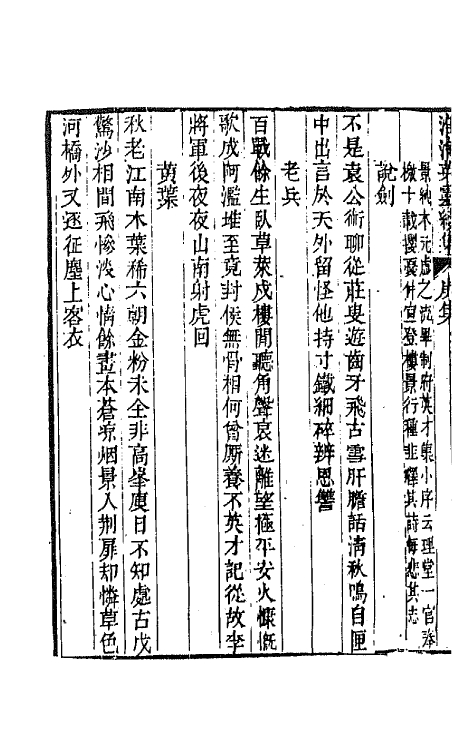 淮海英靈續集 庚集
景純木元虛之流畢制府英才集小序云理堂一官奉
檄十載攖憂仲宣登樓景行種菲繹其詩每悲其志
說劍
不是袁公術聊從莊叟遊齒牙飛古雪肝膽話清秋鳴自匣
中出言於天外留怪他持寸鐵細碎辨恩讐
老兵
百戰餘生臥草萊戍樓閒聽角聲哀迷離望極平安火慷慨
歌成阿濫堆至竟封侯無骨相何曾厮養不英才記從故李
將軍後夜夜山南射虎回
黃葉
秋老江南木葉稀六朝金粉未全非高峯庾日不知處古戍
驚沙相間飛慘淡心情餘畫本蒼凉烟景入荆扉却憐草色
河橋外又逐征塵上客衣